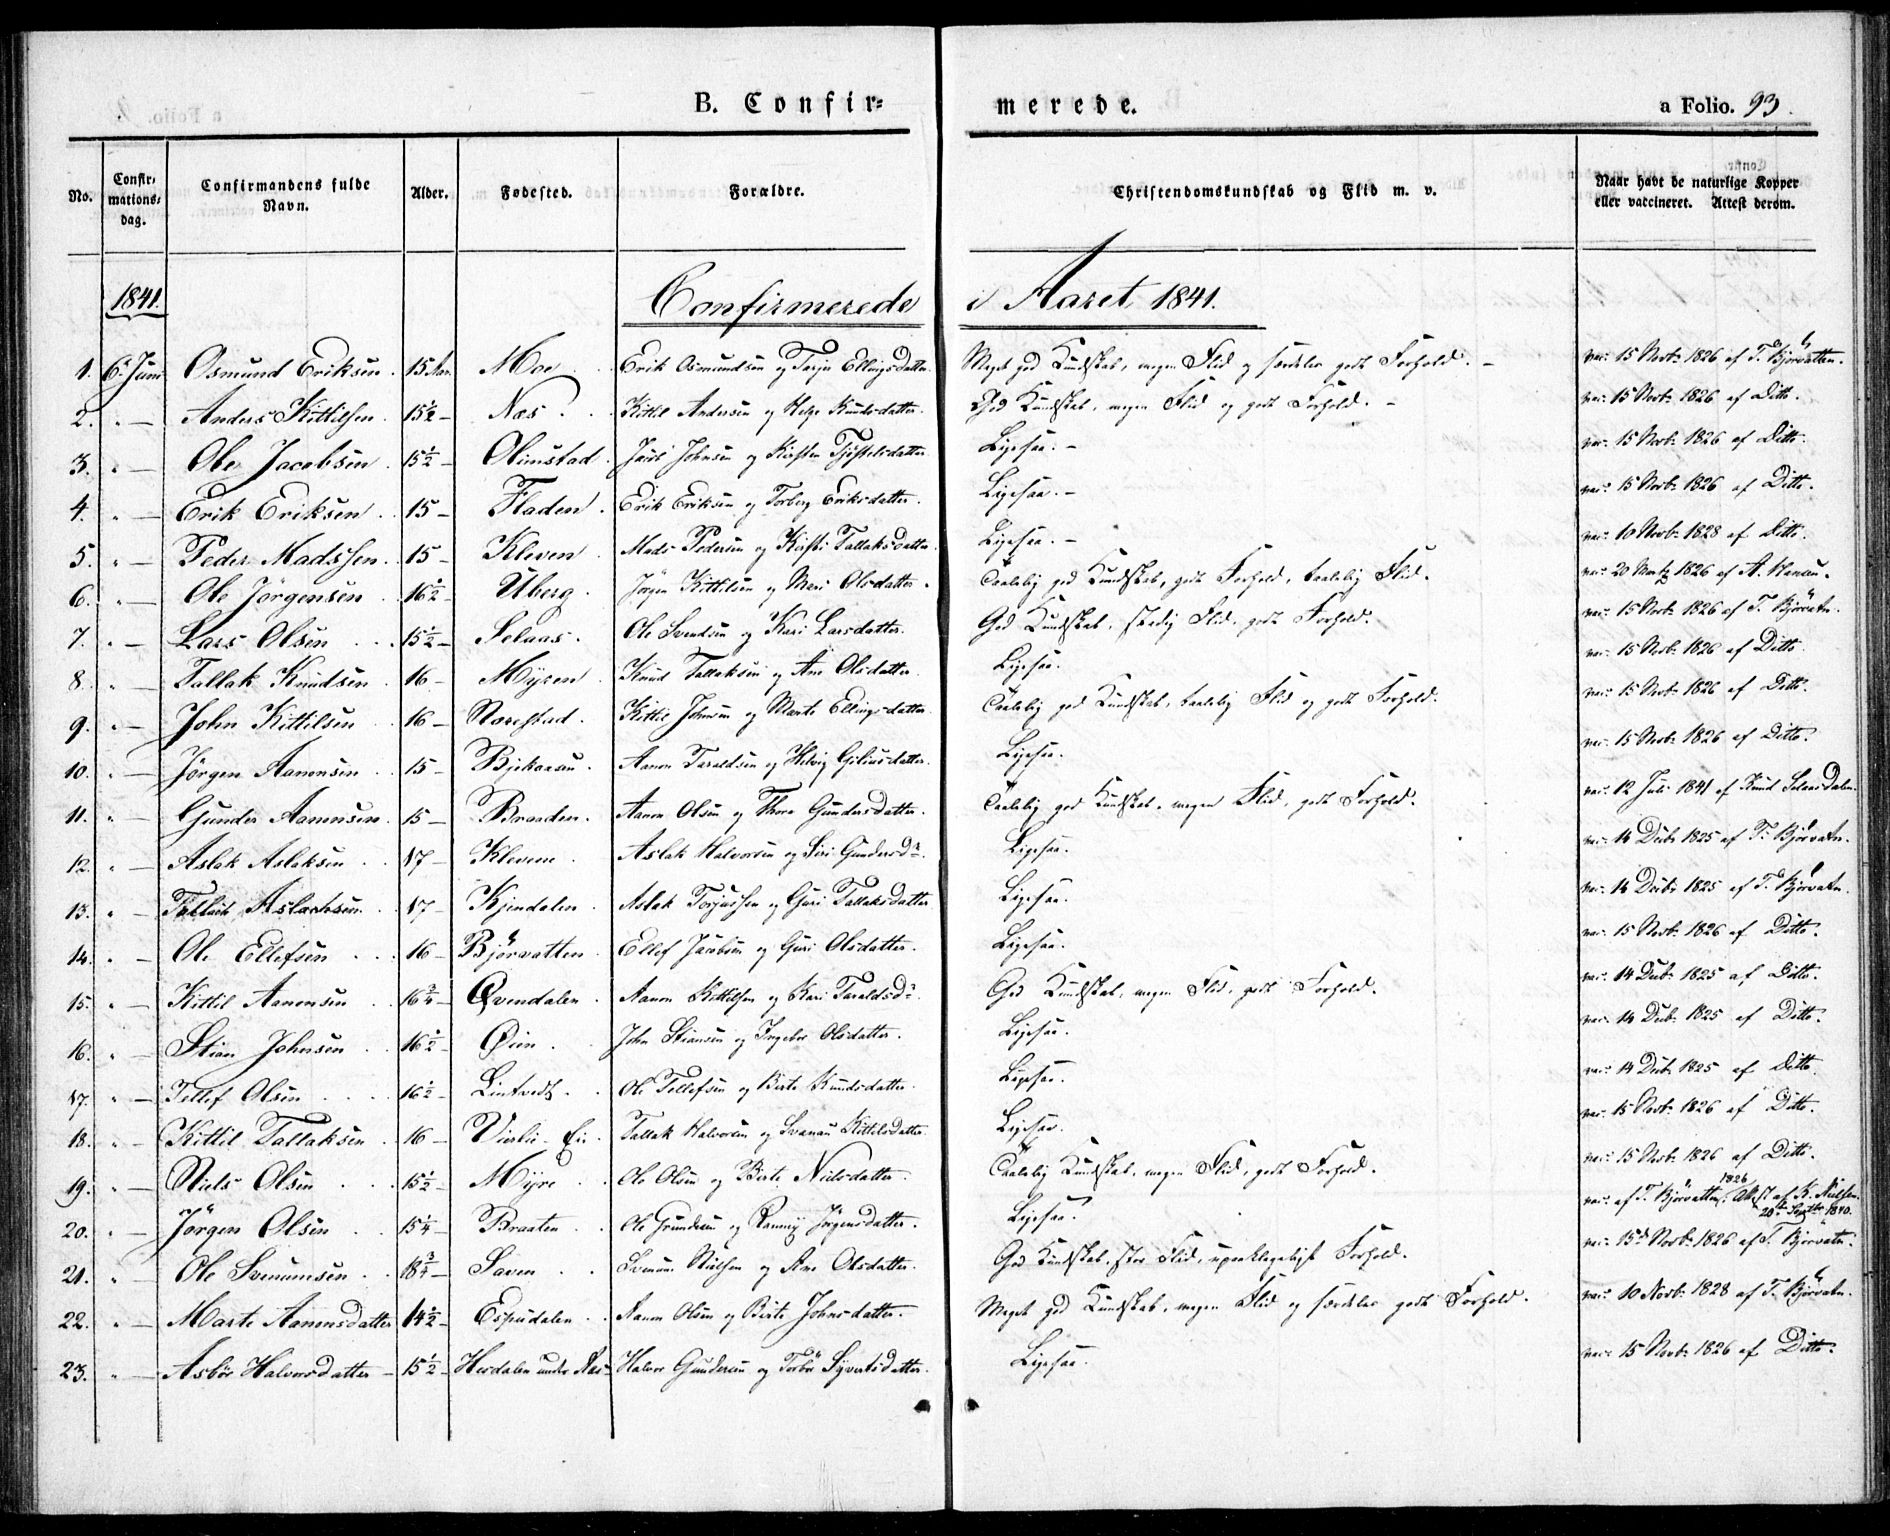 B. Confirmerede. a Folio. 93.
No. Confirmationsdag. Confirmandens fulde Navn. Alder. Fødested. Forældre. Christendomskundskab og Flid m. v. Naar havt de naturlige Kopper eller vaccineret. Attest derom.
1841. Confirmerede i Aaret 1841.
1. 6. Juni Osmund Eriksen 15 Aar. Moe Erik Osmundsen og Tarjer Ellingsdatter Meget god Kundskab, megen Flid og særdeles godt Forhold. vac: 15 Novb: 1826 af T. Bjørvatten.
2. " — Anders Kittilsen 15½ — Næs. Kittil Andersen og Helge Knudsdatter. God Kundskab, megen Flid og godt Forhold. vac: 15 Novb: 1826 af Ditto.
3. " — Ole Jacobsen 15½ — Olimstad Jacob Johnsen og Kirsten Tjøstelsdatter Ligesaa. vac: 15 Novb: 1826 af Ditto.
4. " — Erik Eriksen 15 — Fladen. Erik Eriksen og Torberg Eriksdatter. Ligesaa. vac: 15 Novb: 1826 af Ditto.
5. " — Peder Madssen 15 — Kleven Mads Pedersen og Kirsti Tallaksdatter. Ligesaa. vac: 10 Novb: 1828 af Ditto.
6. " — Ole Jørgensen 16½ — Uberg. Jørgen Kittilsen og Mari Olsdatter. Taalelig god Kundskab, godt Forhold, taalelig Flid. vac: 20 Martz 1826 af A. Hansen.
7. " — Lars Olsen 15½ — Selaas. Ole Svendsen og Kari Larsdatter. God Kundskab, stadig Flid, godt Forhold. vac: 15 Novb: 1826 af T. Bjørvatn.
8. " — Tallak Knudsen 16 — Myren Knud Tallaksen og Ane Olsdatter Ligesaa. vac: 15 Novb: 1826 af Ditto.
9. " — John Kittilsen 16 — Narestad. Kittil Johnsen og Marte Ellingsdatter Taalelig god Kundskab, taalelig Flid og godt Forhold. vac: 15 Novb: 1826 af Ditto.
10. " — Jørgen Aanonsen 15 — Aanon Taraldsen og Helvig Giliusdatter Ligesaa. vac: 15 Novb: 1826 af Ditto.
11. " — Gunder Aanonsen 15 — Braaden. Aanon Olsen og Thora Gundersdatter. Taalelig god Kundskab, megen Flid, godt Forhold. vac: 12 Juli 1841 af Knud Selaasdalen.
12. " — Aslak Aslaksen 17 — Klevene Aslak Halvorsen og Siri Gundersdr. Ligesaa. vac: 14 Decb: 1825 af T. Bjørvatn.
13. " — Tallack Aslachsen 17 — Kjendalen Aslak Torjussen og Guri Tallaksdatter Ligesaa. vac: 14 Decb: 1825 af T. Bjørvatn.
14. " — Ole Ellefsen 16 — Bjørvatten Ellef Jacobsen og Guri Olsdatter. Ligesaa. vac: 15 Novb: 1826 af Ditto.
15. " — Kittil Aanonsen 16¾ — Qvendalen Aanon Kittilsen og Kari Taraldsdr. God Kundskab, megen Flid, godt Forhold. vac: 14 Decb: 1825 af Ditto.
16. " — Stian Johnsen 16½ — Øien John Stiansen og Ingebor Olsdatter. Ligesaa. vac: 14 Decb: 1825 af Ditto.
17. " — Tellef Olsen 16½ — Lintvedt Ole Tellefsen og Birte Knudsdatter. Ligesaa. vac: 14 Decb: 1825 af Ditto.
18. " — Kittil Tallaksen 16 — Vierlie Ei. Tallak Halvorsen og Svanau Kittilsdatter. Ligesaa. vac: 15 Novb: 1826 af Ditto.
19. " — Niels Olsen 15½ — Myre Ole Olsen og Birte Nielsdatter. Taalelig Kundskab, megen Flid, godt Forhold. vac: 15 Novb: 1826 af Ditto.
20. " — Jørgen Olsen 15¼ — Braaten Ole Gundersen og Rannej Jørgensdatter. Ligesaa. vac: af T. Bjørvatten 1826 Attest af K. Nielsen 20de Septbr 1840.
21. " — Ole Svenumsen 18¾ — Saven Svenum Nielsen og Ane Olsdatter. God Kundskab, stor Flid, upaaklageligt Forhold. vac: 15de Novb: 1826 af T. Bjørvatn.
22. " — Marte Aanonsdatter 14½ — Espedalen Aanon Olsen og Birte Johnsdatter. Meget god Kundskab, megen Flid og særdeles godt Forhold. vac: 10 Novb: 1828 af T. Bjørvatn.
23. " — Asbør Halvorsdatter 15½ — Herdalen under Næs Halvor Gundersen og Torbør Syvertsdatter. Ligesaa. vac: 15 Novb: 1826 af Ditto.